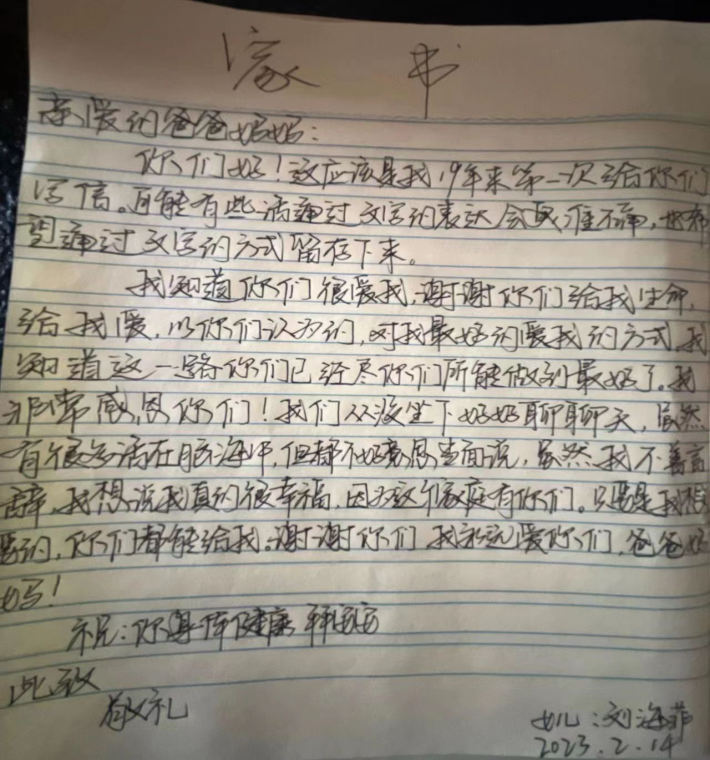 家 书
亲爱的爸爸妈妈：
你们好！这应该是我19年来第一次给你们
写信。可能有些话通过文字的表达会更准
望通过文字的方式留存下来。
我知道你们很爱我，谢谢你们给我生命，
给我爱，以你们认为的，对我最好的爱我的方式。我
知道这一路你们已经尽你们所能做到最好了。我
非常感恩你们！我们从没坐下好好聊聊天，虽然
有很多话在脑海中，但都不好意思当面说，虽然我不善言
辞，我想说我真的很幸福，因为这个家庭有你们。只要是我想
要的，你们都能给我。谢谢你们 我永远爱你们，爸爸妈
妈！
祝：你身体健康 平安
此致
敬礼
女儿：刘海菲
2023.2.14